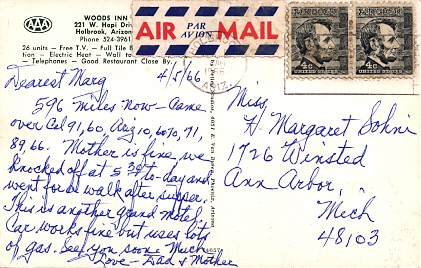 AAA
WOODS INN
221 W. Hopi Dri
Holbrook, Arizon
Phone 524-3961
26 units - Free T.V. - Full Tile B
tion - Electric Heat - Wall to
- Telephones - Good Restaurant Close By.
PAR
AIR MAIL
PAR AVION
ARIZ.
4¢ 4¢
UNITED STATES UNITED STATES
4/5/66
Dearest Marg
596 miles now - Came
over Cal 91, 60, Ariz 10, 60, 70, 71,
89, 66. Mother is fine, we
knocked off at 5 30 to-day and
went for a walk after supper.
This is another grand motel.
Car works fine but uses lots
of gas. See you soon. Much
Love - Dad & Mother
Miss,
H. Margaret Sohni
1726 Winsted
Ann Arbor,
Mich
48103